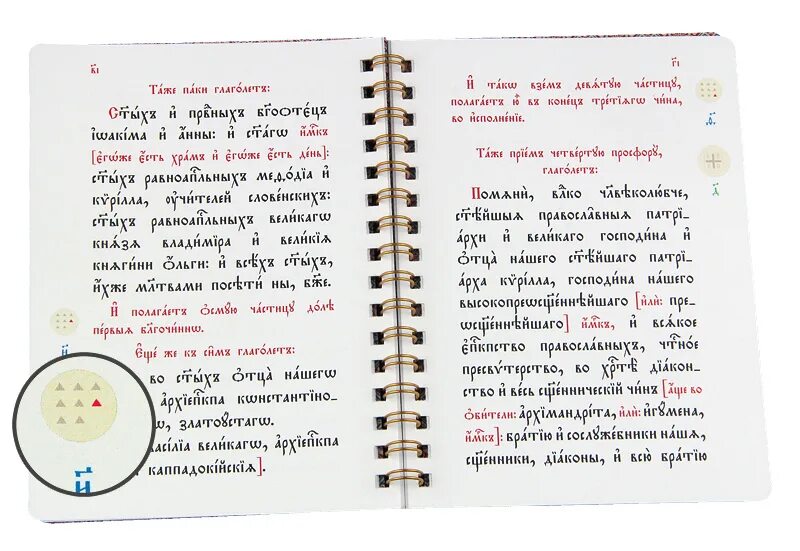 в҃і
Та́же па́ки глаго́летъ:
Ст҃ы́хъ и҆ првⷣныхъ бг҃оѻте́цъ
і҆ѡакі́ма и҆ а҆́нны: и҆ ст҃а́гѡ и҆́м҃къ
[є҆гѡ́же є҆́сть хра́мъ и҆ є҆гѡ́же є҆́сть де́нь]:
ст҃ы́хъ равноап҃льныхъ меѳо́діа и҆
кѷрі́лла, ᲂу҆чи́телей слове́нскихъ:
ст҃ы́хъ равноап҃льныхъ вели́кагѡ
кнѧ́зѧ влади́міра и҆ вели́кїѧ
кнѧги́ни ѻ҆́льги: и҆ всѣ́хъ ст҃ы́хъ,
и҆́хже мл҃твами посѣти́ ны, бж҃е.
И҆ полага́етъ ѻ҆сму́ю части́цу до́лѣ
пе́рвыѧ бл҃гочи́ннѡ.
Є҆ще́ же къ си̑мъ глаго́летъ:
во ст҃ы́хъ ѻ҆тца̀ на́шегѡ
а҆рхїеп҃кпа константі́но-
ѡ, златоу́стагѡ.
васі́лїа вели́кагѡ, а҆рхїеп҃кпа
каппадокі́йскїѧ].
и҃
г҃і
И҆ та́кѡ взе́мъ девѧ́тую части́цу,
полага́етъ ю҆̀ въ коне́цъ тре́тїѧгѡ чи́на,
во и҆сполне́нїе.
Та́же прїе́мъ четве́ртую просфору̀,
глаго́летъ:
Помѧнѝ, вл҃ко чл҃вѣколю́бче,
ст҃ѣ́йшыѧ правосла́вныѧ патрїа́-
а҆рхи и҆ вели́каго господи́на и҆
ѻ҆тца̀ на́шего ст҃ѣ́йшаго патрїа́-
а҆рха кѷрі́лла, господи́на на́шего
высокопреѡсщ҃е́ннѣйшаго [и҆лѝ: пре-
ѡсщ҃е́ннѣйшаго] и҆́м҃къ, и҆ всѧ́кое
є҆пⷭ҇кпство правосла́вныхъ, чтⷭ҇но́е
пресву́терство, во хрⷭ҇тѣ̀ дїа́кон-
ство и҆ ве́сь сщ҃е́нническїй чи́нъ [а҆́ще во
ѻ҆би́тели: а҆рхїмандрі́та, и҆лѝ: и҆гу́мена,
и҆́м҃къ]: бра́тїю и҆ сослуже́бники на́шѧ,
сщ҃е́нники, дїа́коны, и҆ всю̀ бра́тїю
д҃